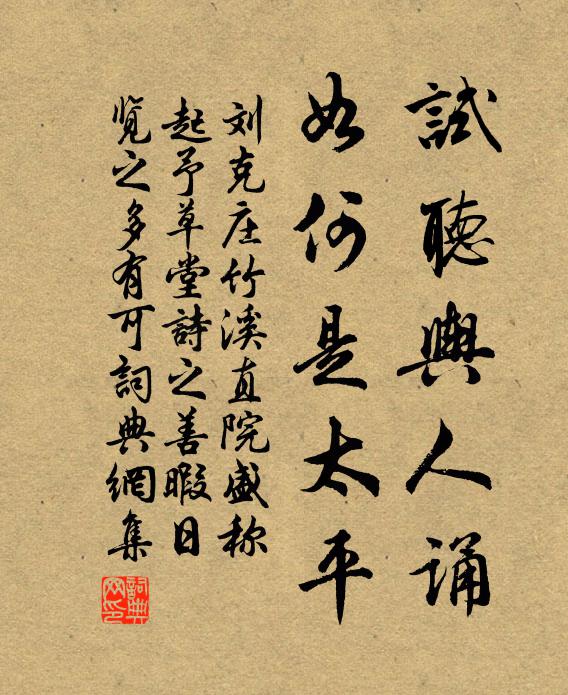 試聽輿人誦
如何是太平
刘克庄竹溪直院盛称
起予草堂詩之善暇日
覽之多有可詞典網集
詞典网印